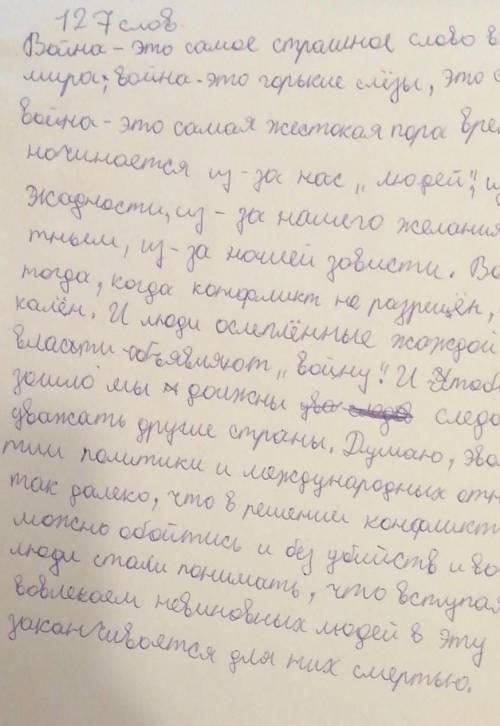 127 слов.
Война - это самое страшное слово в
мира; война - это горькие слёзы, это
война - это самая жестокая пора вре
начинается из-за нас „людей",
жадности, из-за нашего желания
тным, из-за ношей зависти.
тогда, когда конфликт не разрешён,
кален. И люди ослеплённые жаждой
власти объявляют „войну". И чтоб
зошло мы должны следо
уважать другие страны. Думаю, эво
тии политики и международных отн
так далеко, что в решении конфликт
можно обойтись и без убийств и во
люди стали понимать, что вступая
вовлекаем невиновных людей в эту
заканчивается для них смертью.